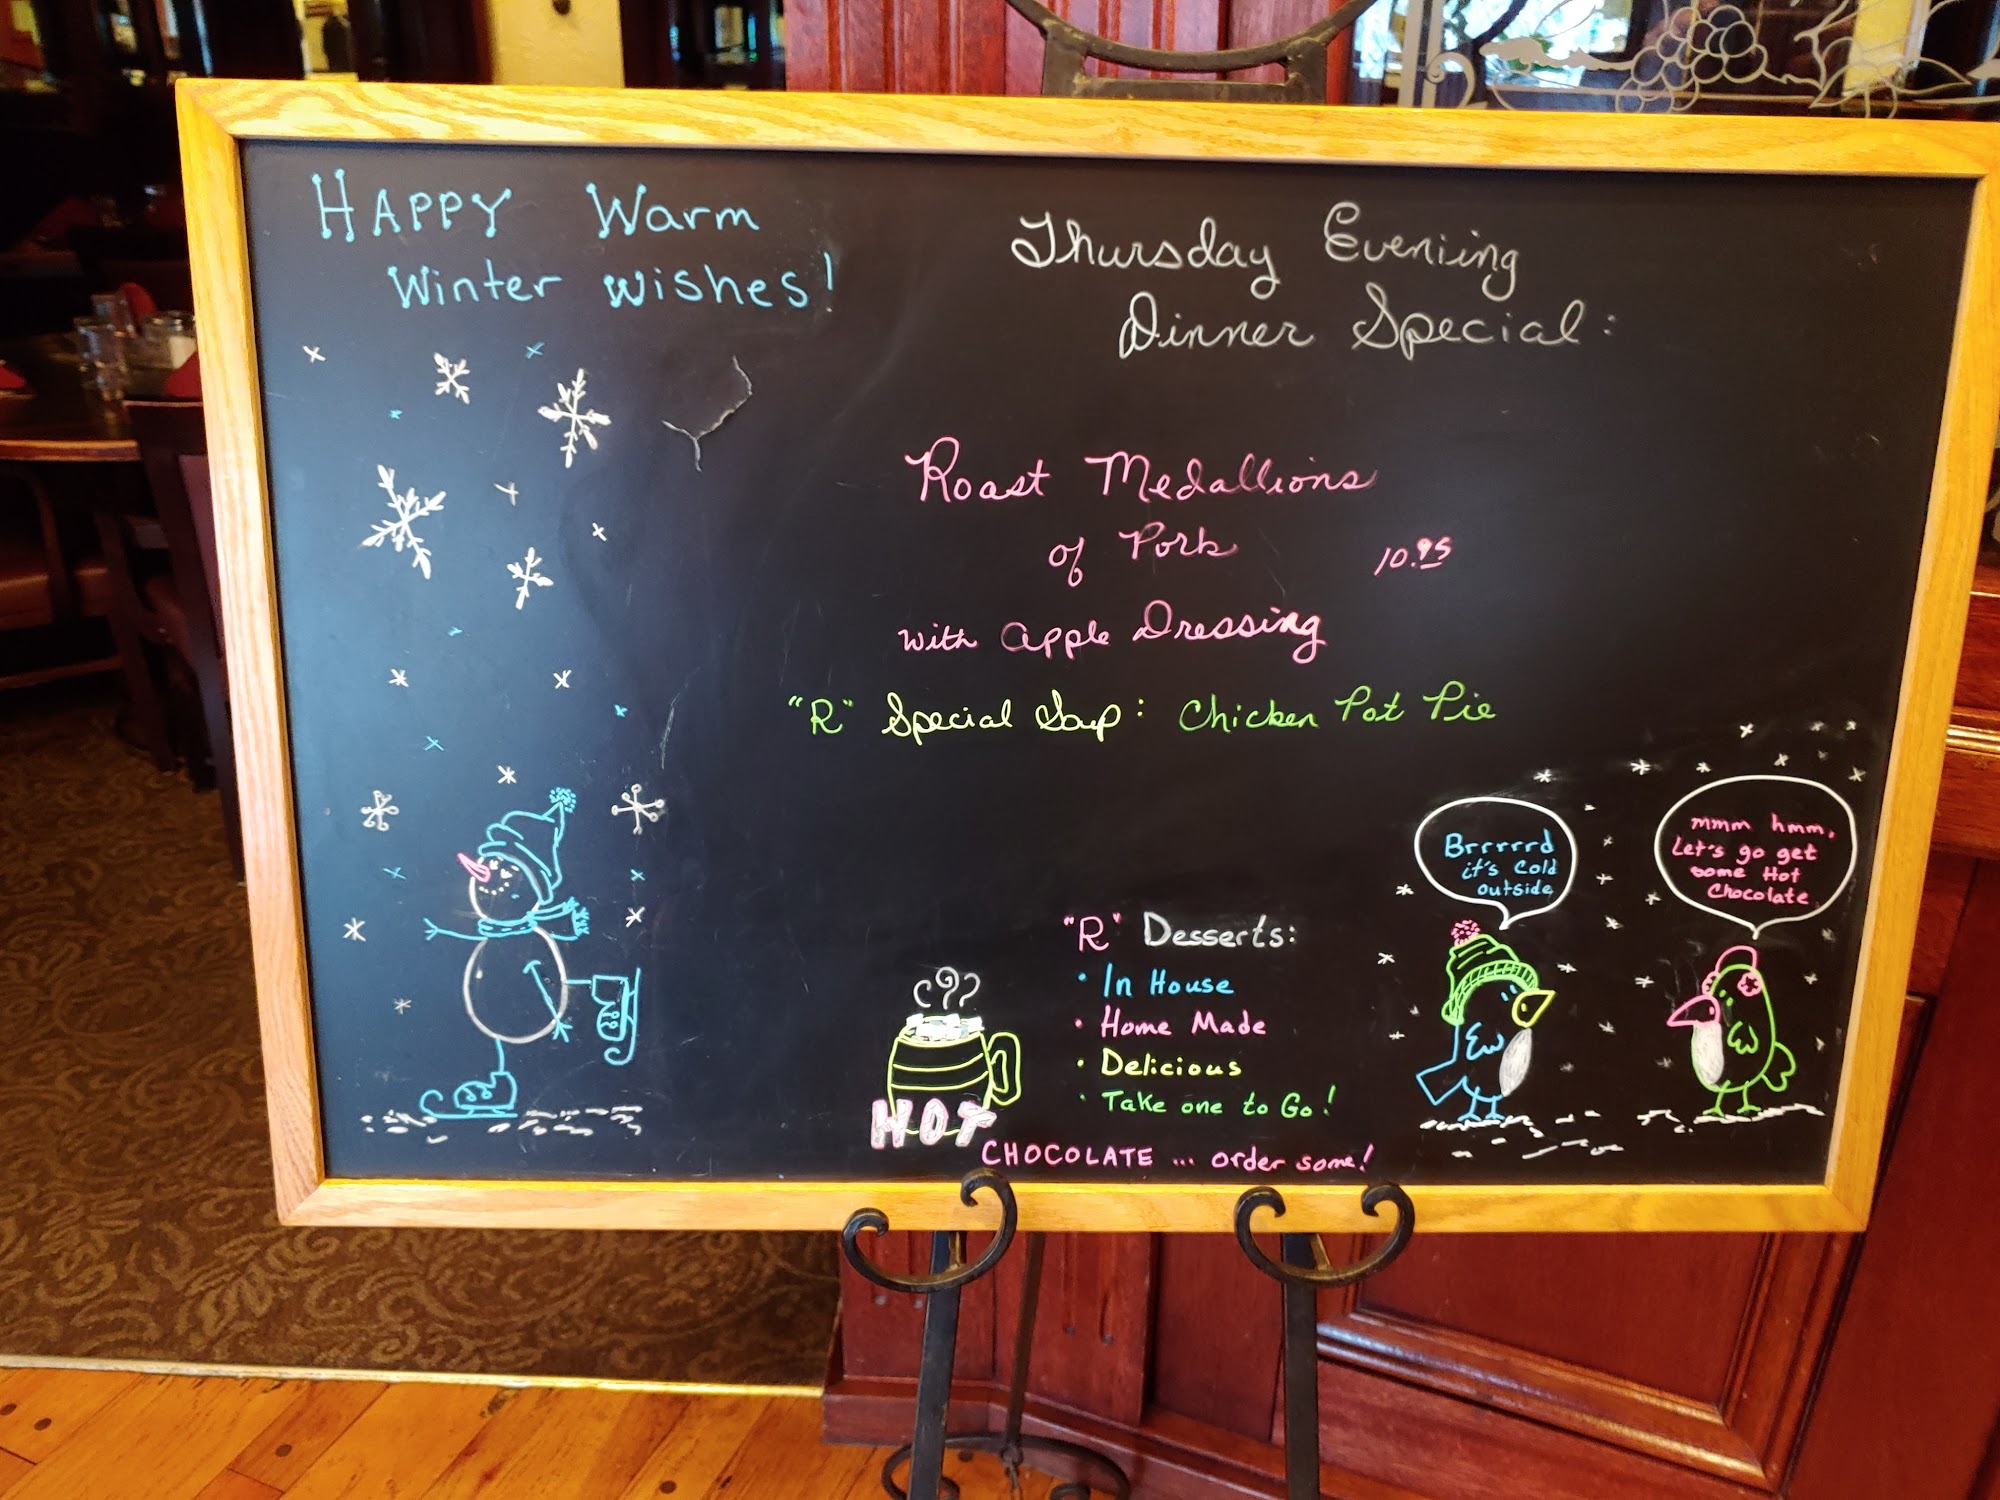 HAPPY Warm
Winter Wishes!
Thursday Eveniing
Dinner Special:
Roast Medallions
of Pork 10.95
with Apple Dressing
"R" Special Soup: Chicken Pot Pie
Brrrrrd
it's cold
outside
mmm hmm,
Let's go get
some Hot
Chocolate
"R" Desserts:
• In House
• Home Made
• Delicious
• Take one to Go!
HOT
CHOCOLATE ... order some!